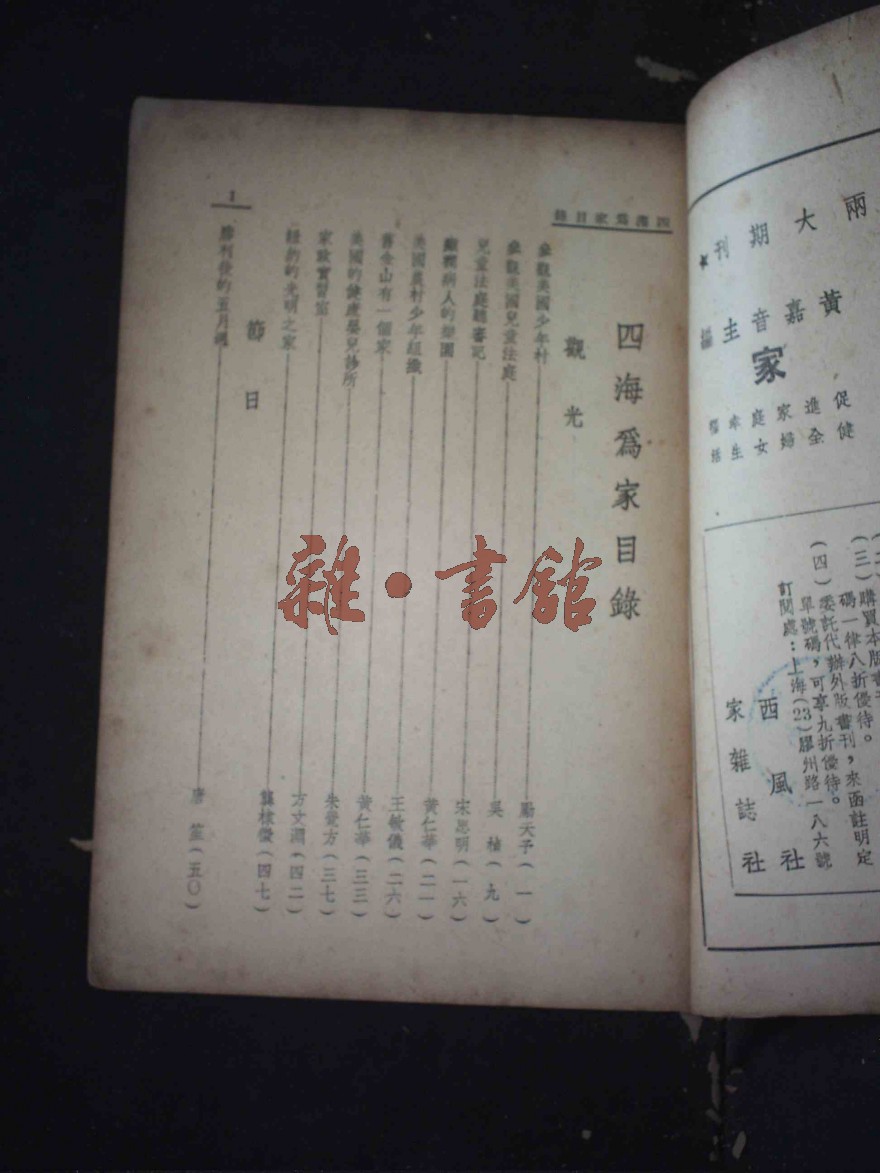 兩大期刊
黃嘉音主編
家
促進家庭幸福
健全婦女生活
(三)購買本版書刊
碼一律八折優待。
(四)委託代辦外版書刊,來函註明定
單號碼,可享九折優待。
訂閱處:上海(23)膠州路一八六號
西風社
家雜誌社
四海爲家目錄
四海爲家目錄
觀光
參觀美國少年村 (一)
參觀美國兒童法庭 吳 (九)
兒童法庭聽審記 宋思明(一六)
病人的樂園 黃仁華(二一)
美國農村少年組織 王敏儀(二六)
舊金山有一個家 黃仁華(三三)
美國的健康嬰兒診所 朱 方(三七)
家政實習室 方文淵(四二)
紐約的光明之家 龔棣徵(四七)
節日
勝利後的五月 唐笙(五〇)
1
雜·書館